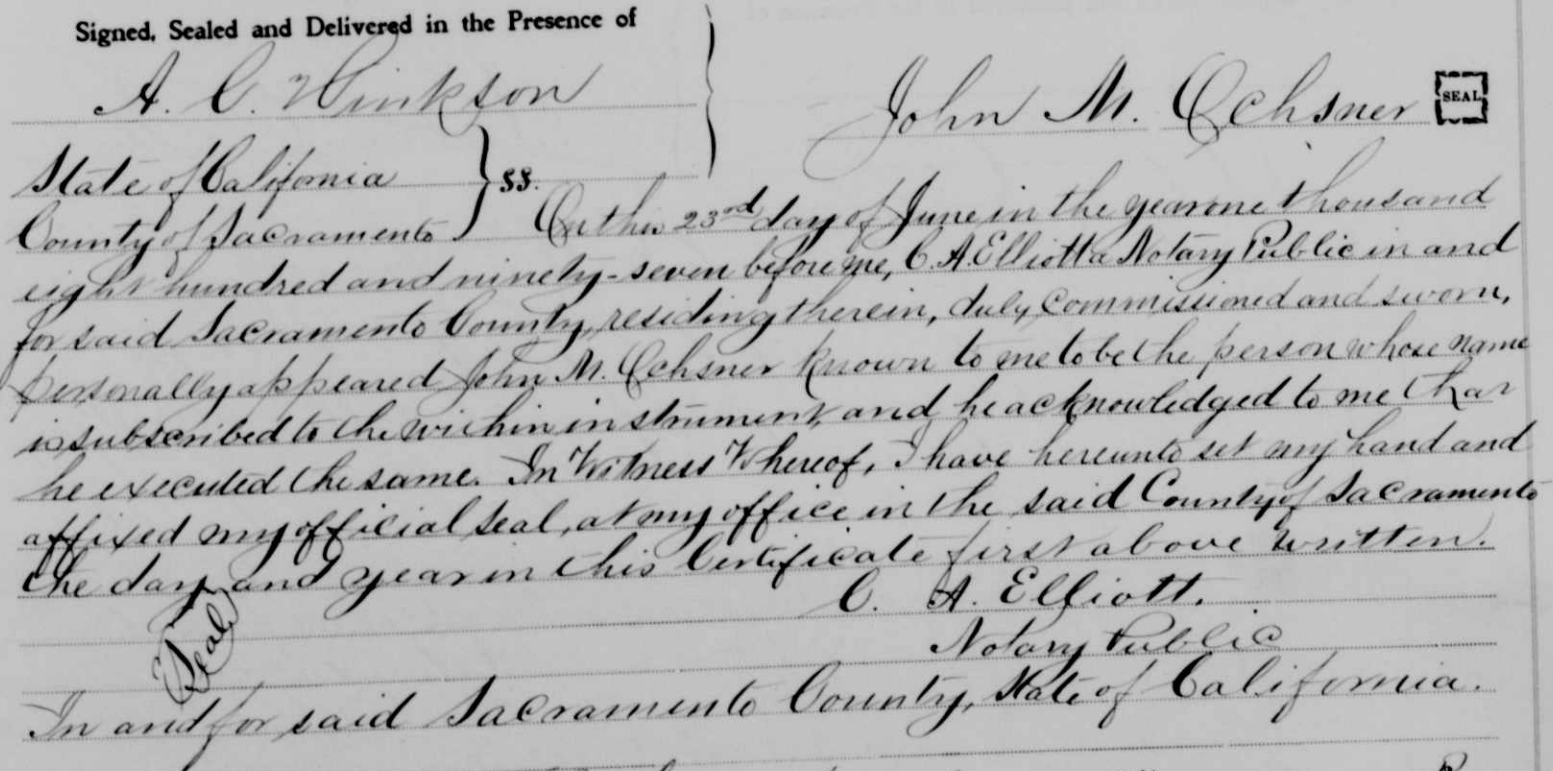 Signed, Sealed and Delivered in the Presence of
A. C. Hinkson
John M. Ochsner SEAL
State of California } ss.
County of Sacramento On this 23rd day of June in the year one thousand
eight hundred and ninety-seven before me, C. A. Elliott a Notary Public in and
for said Sacramento County, residing therein, duly commissioned and sworn,
personally appeared John M. Ochsner known to me to be the person whose name
is subscribed to the within instrument, and he acknowledged to me that
he executed the same. In Witness Whereof, I have hereunto set my hand and
affixed my official seal, at my office in the said County of Sacramento
the day and year in this Certificate first above written.
C. A. Elliott.
(Seal) Notary Public
In and for said Sacramento County, State of California.